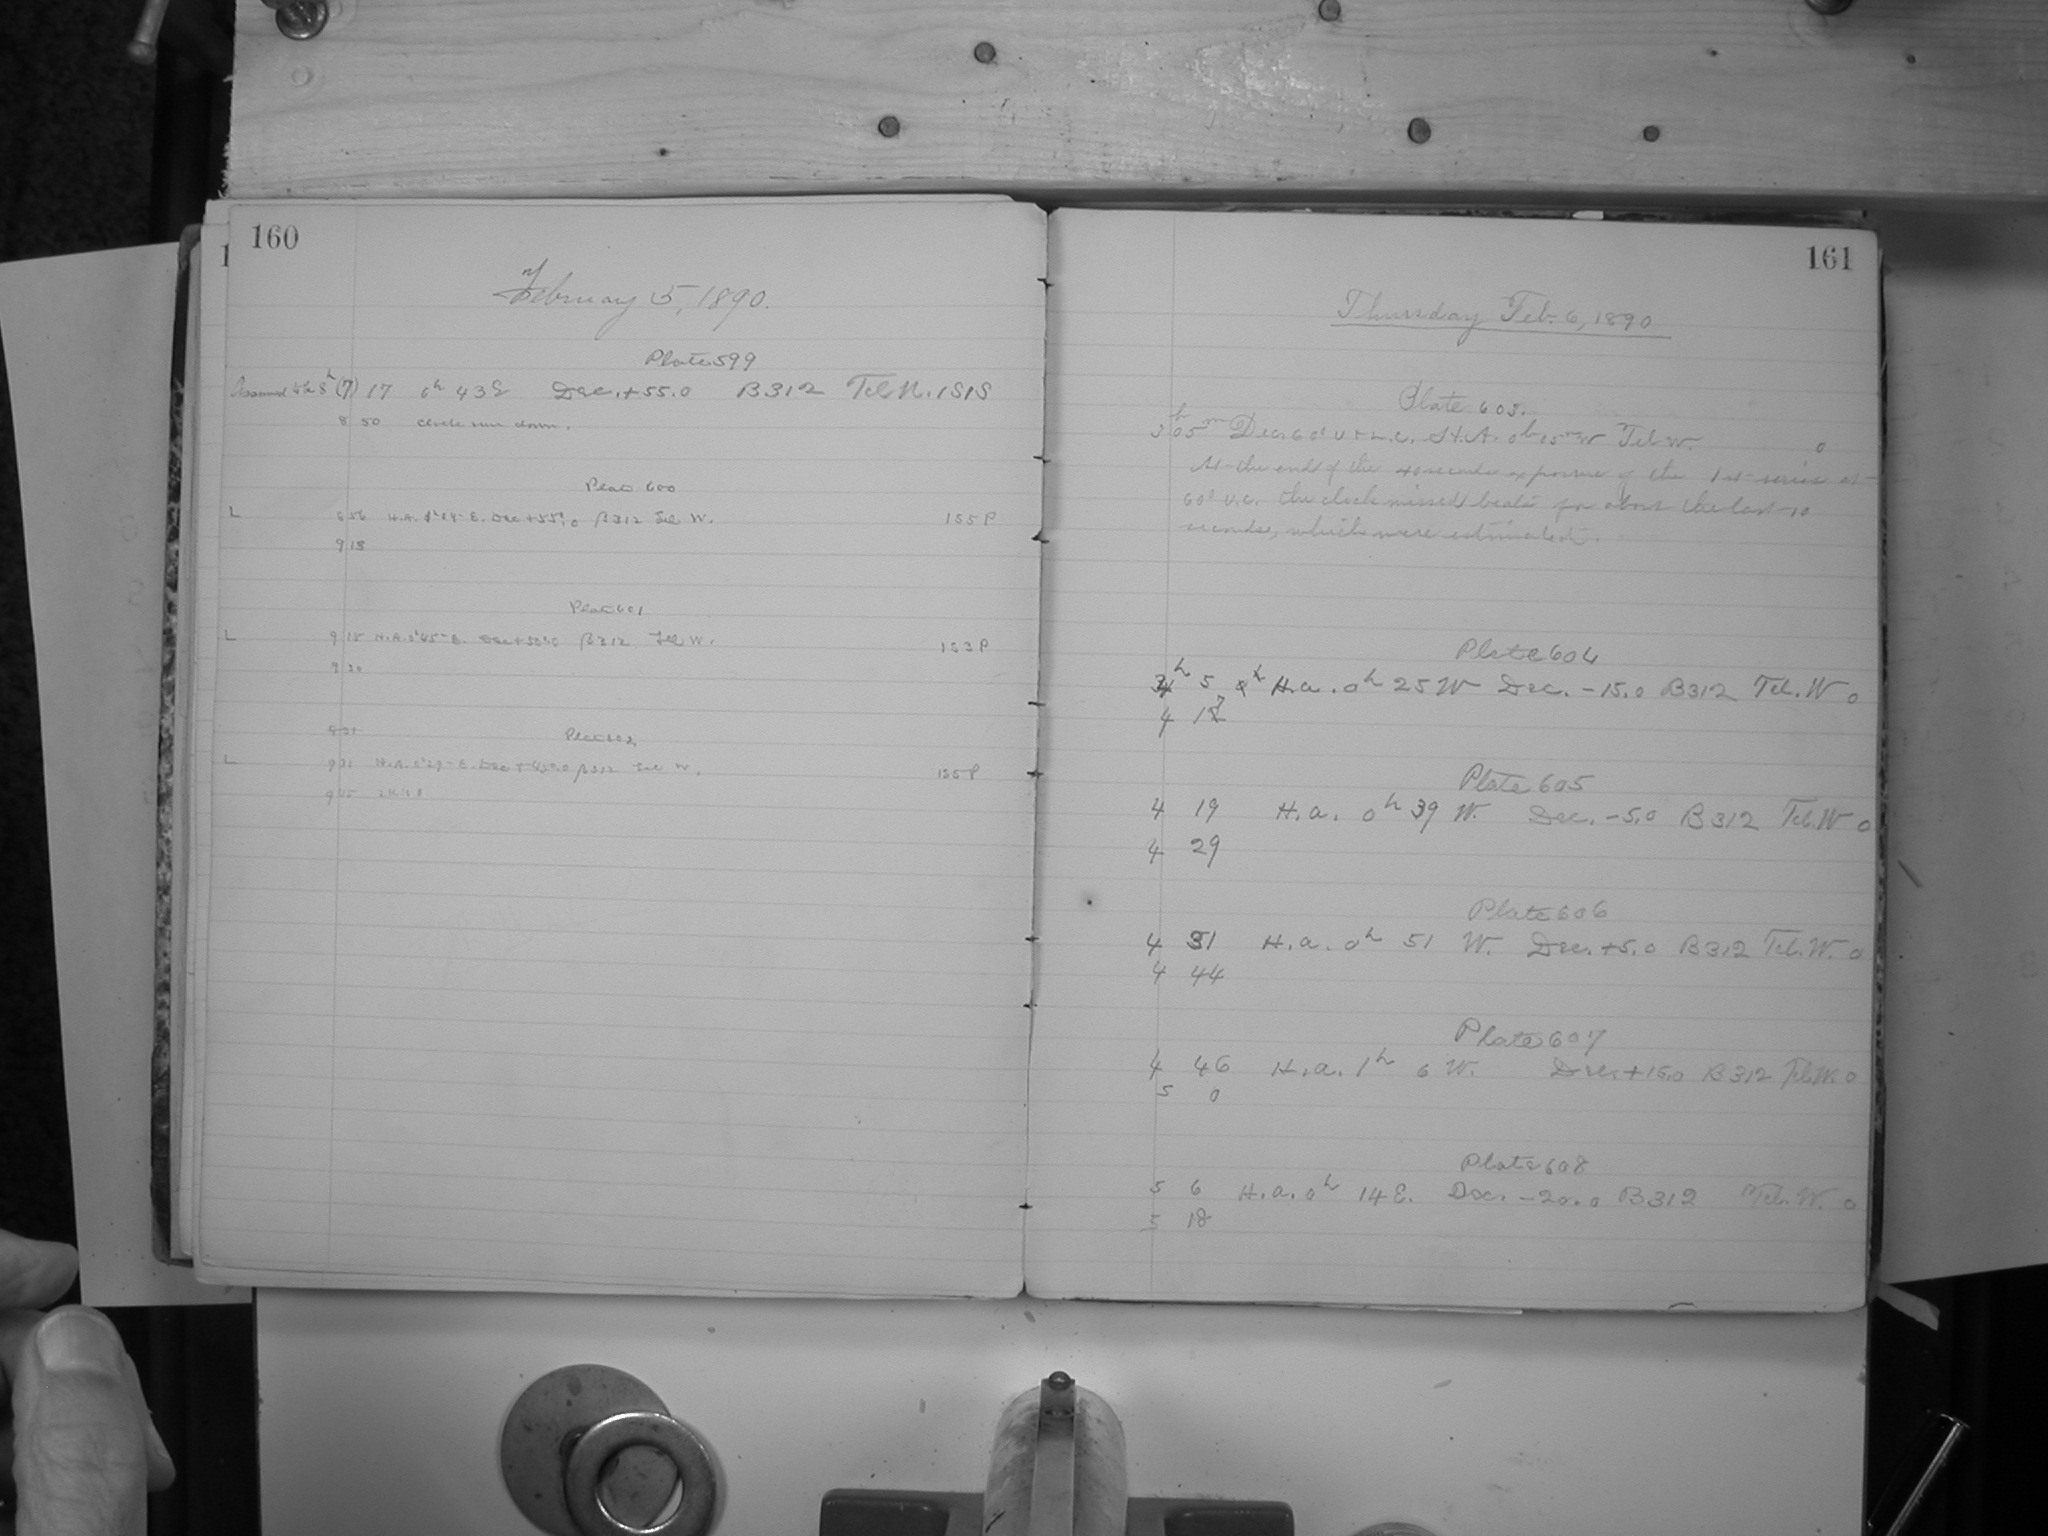 160
February 5, 1890.
Plate 599
Assumed to be 8h (7) 17 6h 43E Dec. +55.0 B312 Tel N. 1S1S
8 50 clock run down.
Plate 600
L 8 56 H.A. E. Dec +55.0 B312 Tel W. 1S5P
9 13
Plate 601
L 9 15 H.A. 5h45m E. Dec +50.0 B312 Tel W. 1S3P
9 30
Plate 602
L 9 31 H.A. 5h29m E. Dec B312 Tel W. 1S5P
9 45
161
Thursday Feb. 6, 1890
Plate 603.
3h 05m Dec. 60° U + L.C. H.A. 0h 15m W Tel W. 0
At the end of the 40 seconds exposure of the 1st series at
60° U.C. the clock missed beats for about the last 10
seconds, which were estimated.
Plate 604
4h 5 H.a. 0h 25 W Dec. -15.0 B312 Tel. W 0
4 17
Plate 605
4 19 H.a. 0h 39 W. Dec. -5.0 B312 Tel. W 0
4 29
Plate 606
4 31 H.a. 0h 51 W. Dec. +5.0 B312 Tel. W. 0
4 44
Plate 607
4 46 H.a. 1h 6 W. Dec. +15.0 B312 Tel. W. 0
5 0
Plate 608
5 6 H.a. 0h 14 E. Dec. -20.0 B312 Tel. W. 0
5 18